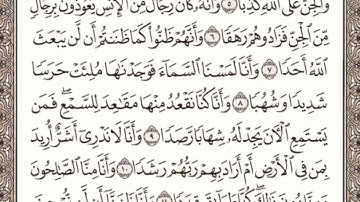 وَٱلْجِنُّ عَلَى ٱللَّهِ كَذِبًا ٥ وَأَنَّهُۥ كَانَ رِجَالٌ مِّنَ ٱلْإِنسِ يَعُوذُونَ بِرِجَالٍ
مِّنَ ٱلْجِنِّ فَزَادُوهُمْ رَهَقًا ٦ وَأَنَّهُمْ ظَنُّوا۟ كَمَا ظَنَنتُمْ أَن لَّن يَبْعَثَ
ٱللَّهُ أَحَدًا ٧ وَأَنَّا لَمَسْنَا ٱلسَّمَآءَ فَوَجَدْنَٰهَا مُلِئَتْ حَرَسًا
شَدِيدًا وَشُهُبًا ٨ وَأَنَّا كُنَّا نَقْعُدُ مِنْهَا مَقَٰعِدَ لِلسَّمْعِ ۖ فَمَن
يَسْتَمِعِ ٱلْـَٔانَ يَجِدْ لَهُۥ شِهَابًا رَّصَدًا ٩ وَأَنَّا لَا نَدْرِىٓ أَشَرٌّ أُرِيدَ
بِمَن فِى ٱلْأَرْضِ أَمْ أَرَادَ بِهِمْ رَبُّهُمْ رَشَدًا ١٠ وَأَنَّا مِنَّا ٱلصَّٰلِحُونَ